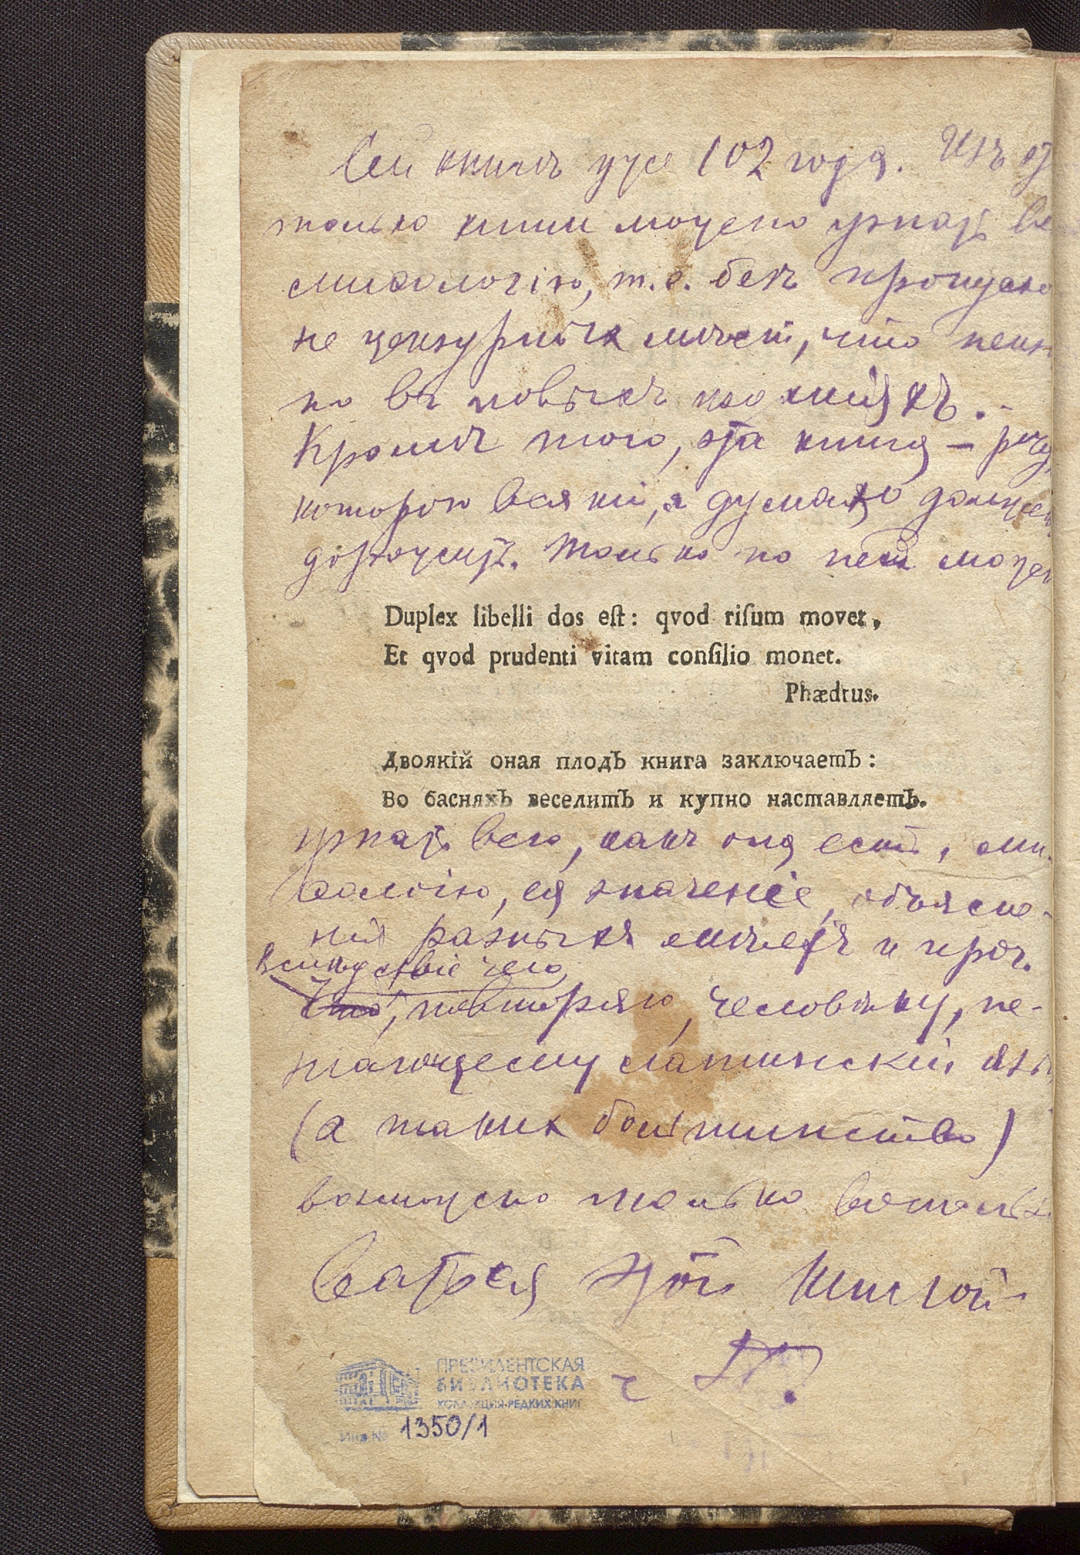 Сей книгѣ уже 102 года. Изъ
только книги можно узнать
миѳологію, т.е. безъ
не цензурныхъ мѣст, что
но въ новыхъ изданіяхъ.
Кромѣ того, эта книга —
которою всякій, я думаю
дорожить. Только по ней
Duplex libelli dos est: qvod risum movet,
Et qvod prudenti vitam consilio monet.
Phædrus.
Двоякій оная плодЪ книга заключаетЪ:
Во басняхЪ веселитЪ и купно наставляетЪ.
узнать всю, какъ она есть, ми-
ѳологію, ея значеніе, объясне-
нія разныхъ и проч.
Вслѣдствіе чего
повторяю, человѣку, не-
знающему латинскій
(а таких большинство)
возможно только
ваться этой книгой
ПРЕЗИДЕНТСКАЯ
БИБЛИОТЕКА
КОЛЛЕКЦИЯ РЕДКИХ КНИГ
Инв № 1350/1